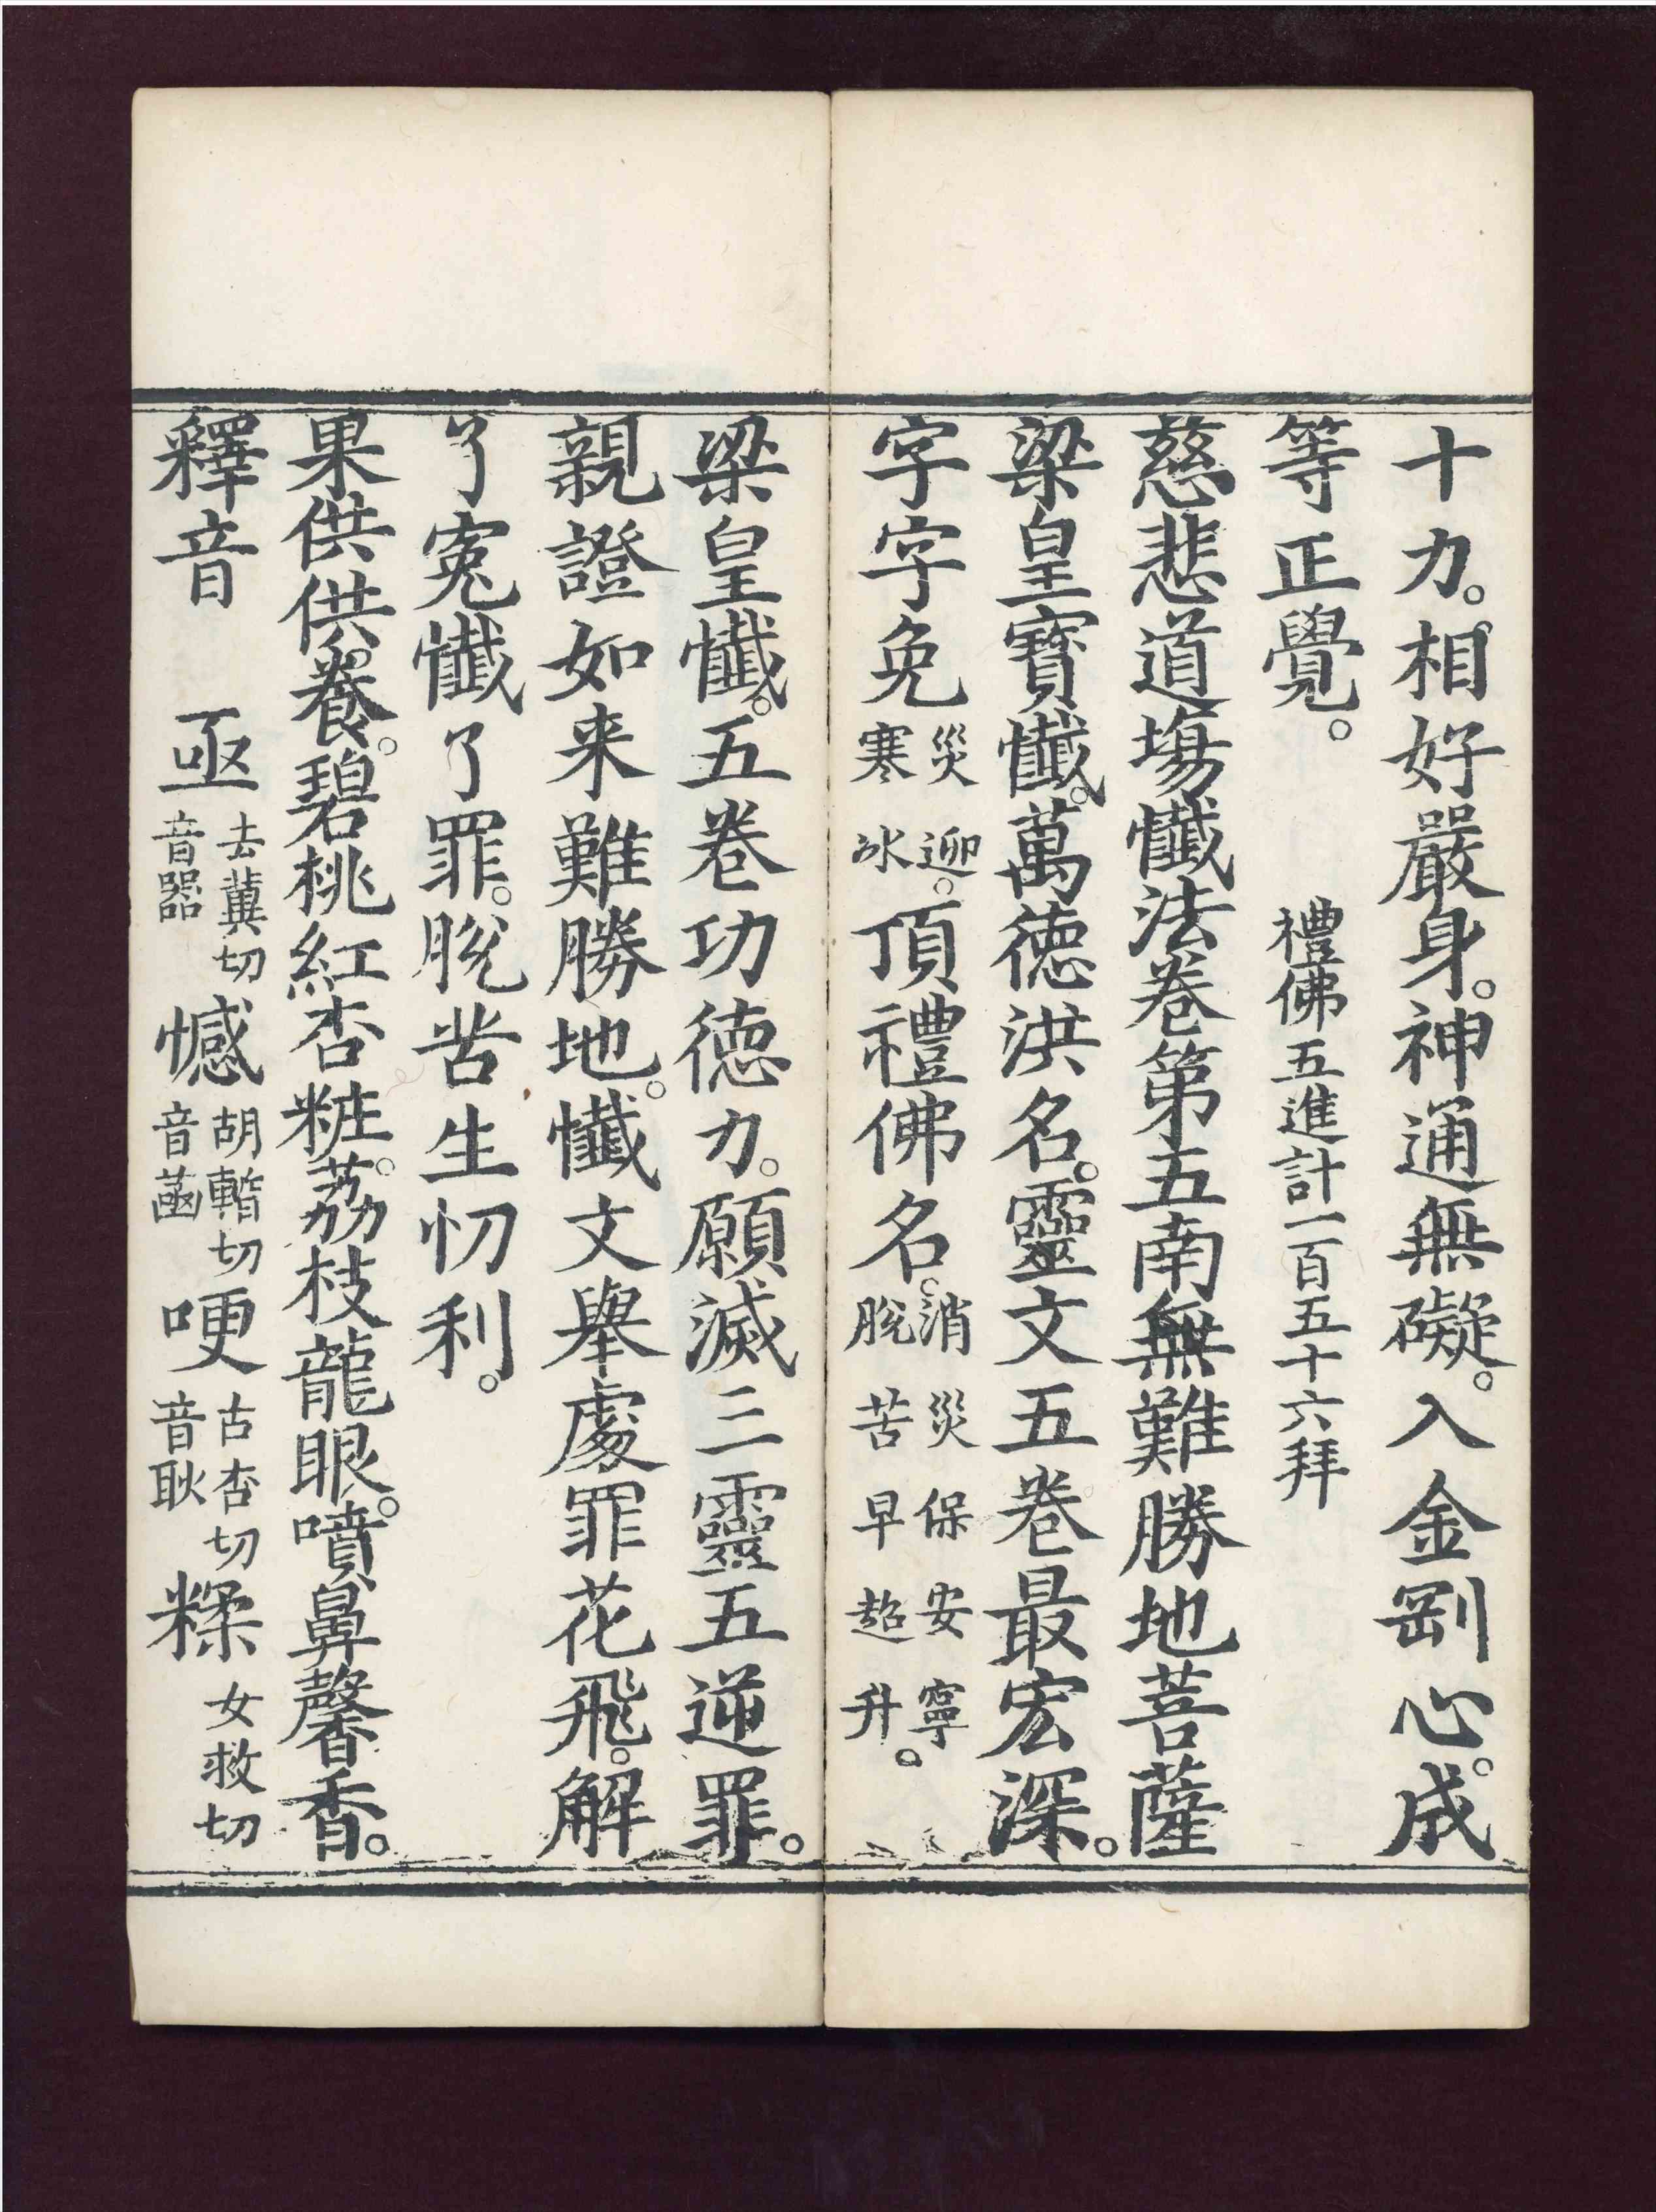 十力。相好嚴身。神通無礙。入金剛心。成
等正覺。　禮佛五進計一百五十六拜
慈悲道場懺法卷第五南無難勝地菩薩
梁皇寶懺。萬德洪名。靈文五卷最宏深。
字字免災迎。寒冰頂禮佛名。消災保安寧脫苦早超升。
梁皇懺。五卷功德力。願滅三靈五逆罪。
親證如来難勝地。懺文舉處罪花飛。解
了寃懺了罪。脫苦生忉利。
果供供。養。碧桃紅杏粧。荔枝龍眼。噴鼻馨香。
釋音　亟去冀切音器憾胡轄切音菡哽古杏切音耿糅女救切